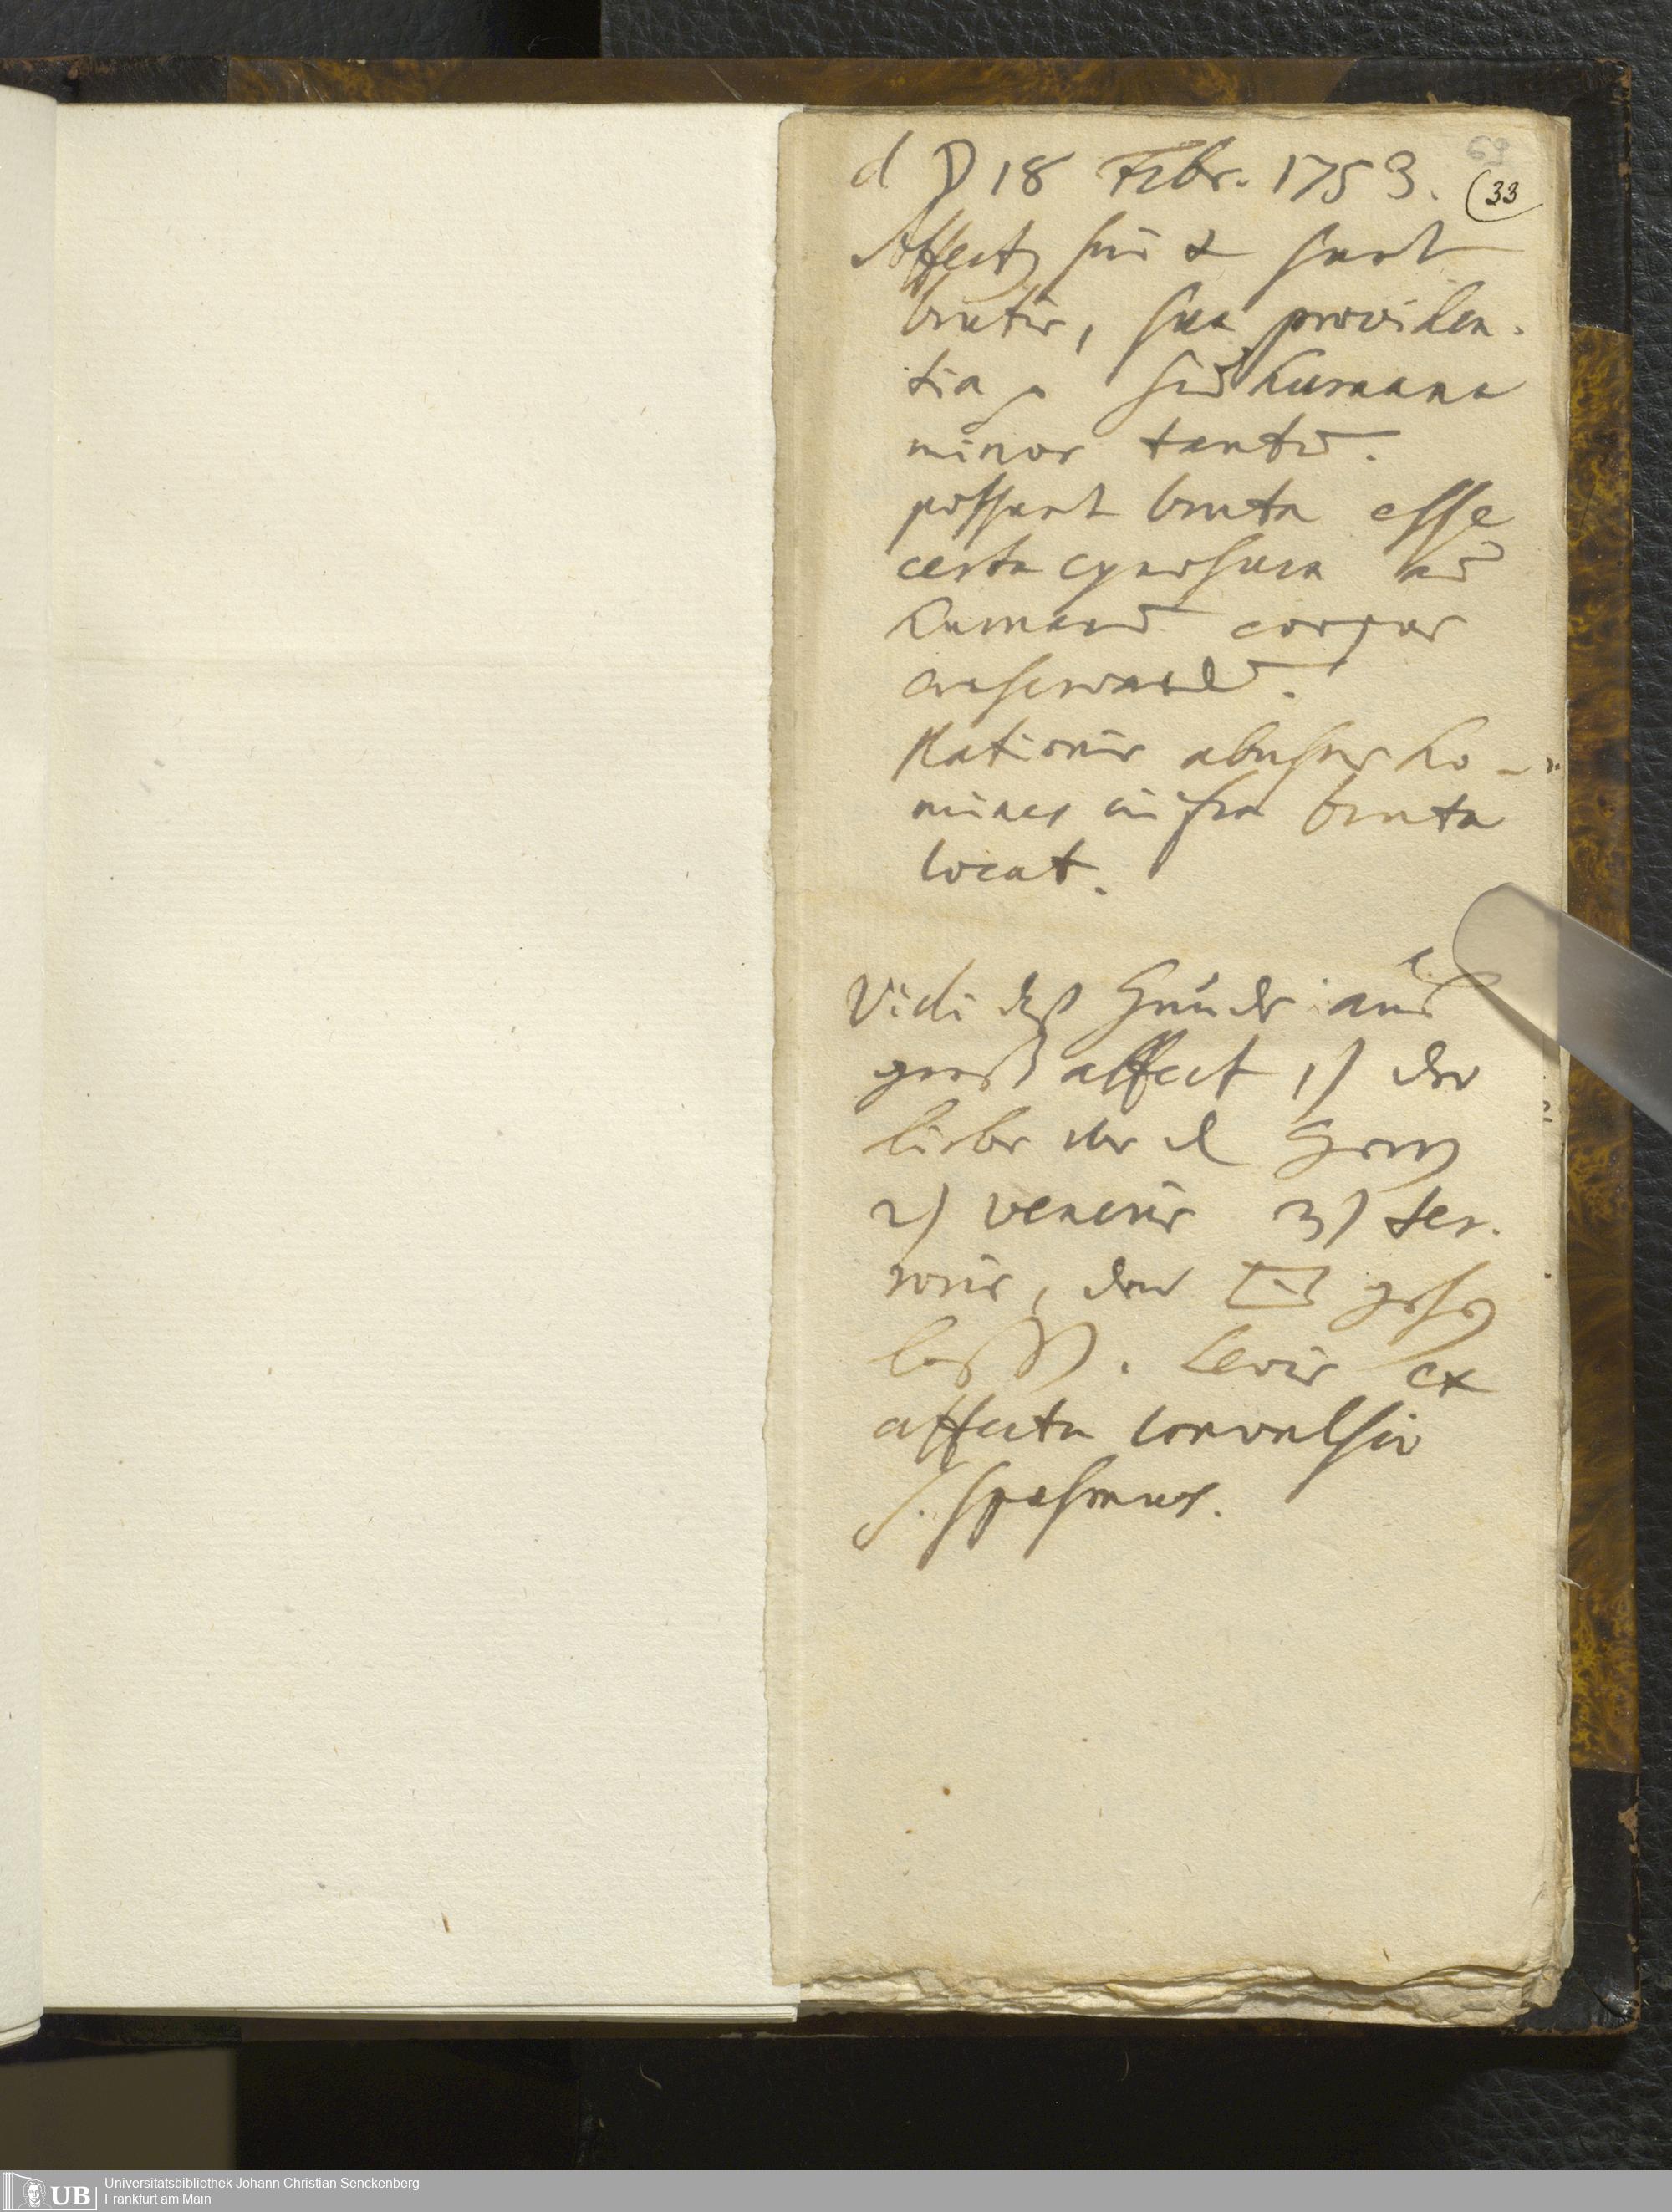 69
d ☽ 18 Febr. 1753.
(33
Affectus sui & sunt
brutis, sua providen-
tia, sed humana
minor tantum.
possunt bruta esse
certa cynosura ad
humanum corpus
conservandum.
Rationis abusus ho-
mines infra bruta
locat.
Vidi daß Hunde auch
groß affect 1) der
liebe der d Herrn
2) veneris 3) ter-
roris, den
. Levis ex
affectu convulsio
s. spasmus.
UB
Universitätsbibliothek Johann Christian Senckenberg
Frankfurt am Main